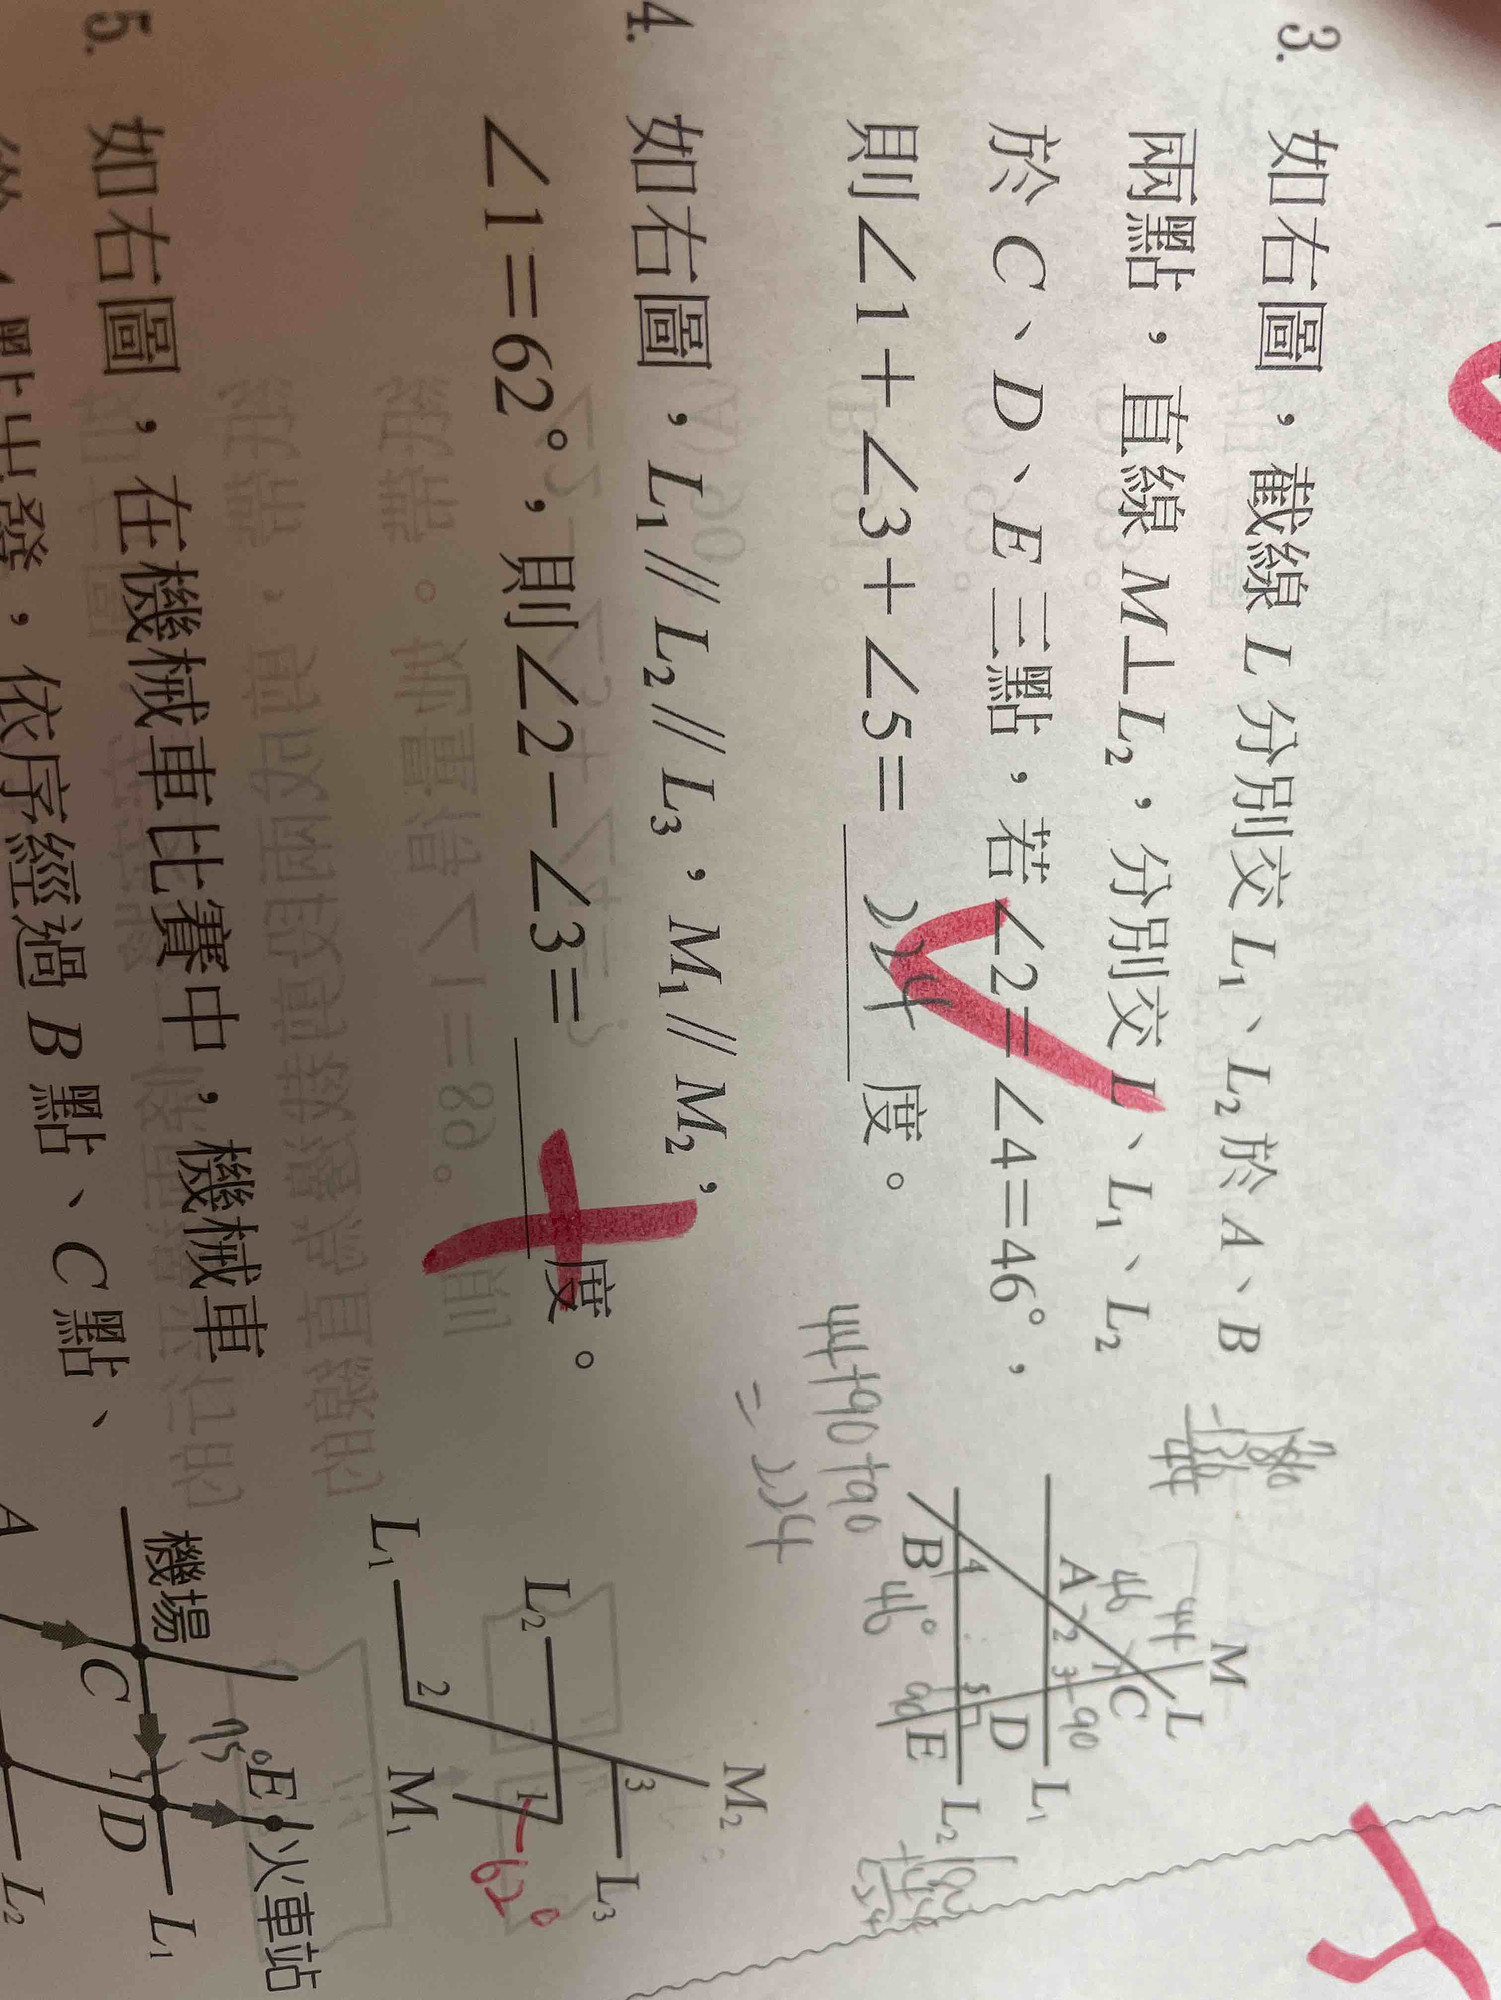 3. 如右圖，截線 L 分別交 L₁、L₂ 於 A、B
兩點，直線 M⊥L₂，分別交 L、L₁、L₂
於 C、D、E 三點，若∠2＝∠4＝46°，
則∠1＋∠3＋∠5＝ 224 度。
180
44
44+90+90
=224
M
L
44
46
1
C
A
2
3
90
L₁
D
4
5
B
46°
90
E
L₂
4. 如右圖，L₁∥L₂∥L₃，M₁∥M₂，
∠1＝62°，則∠2－∠3＝ 度。
M₂
3
L₃
L₂
1
62°
2
L₁
M₁
5. 如右圖，在機械車比賽中，機械車
從 A 點出發，依序經過 B 點、C 點、
機場
95°
E
火車站
C
1
D
L₁
A
L₂